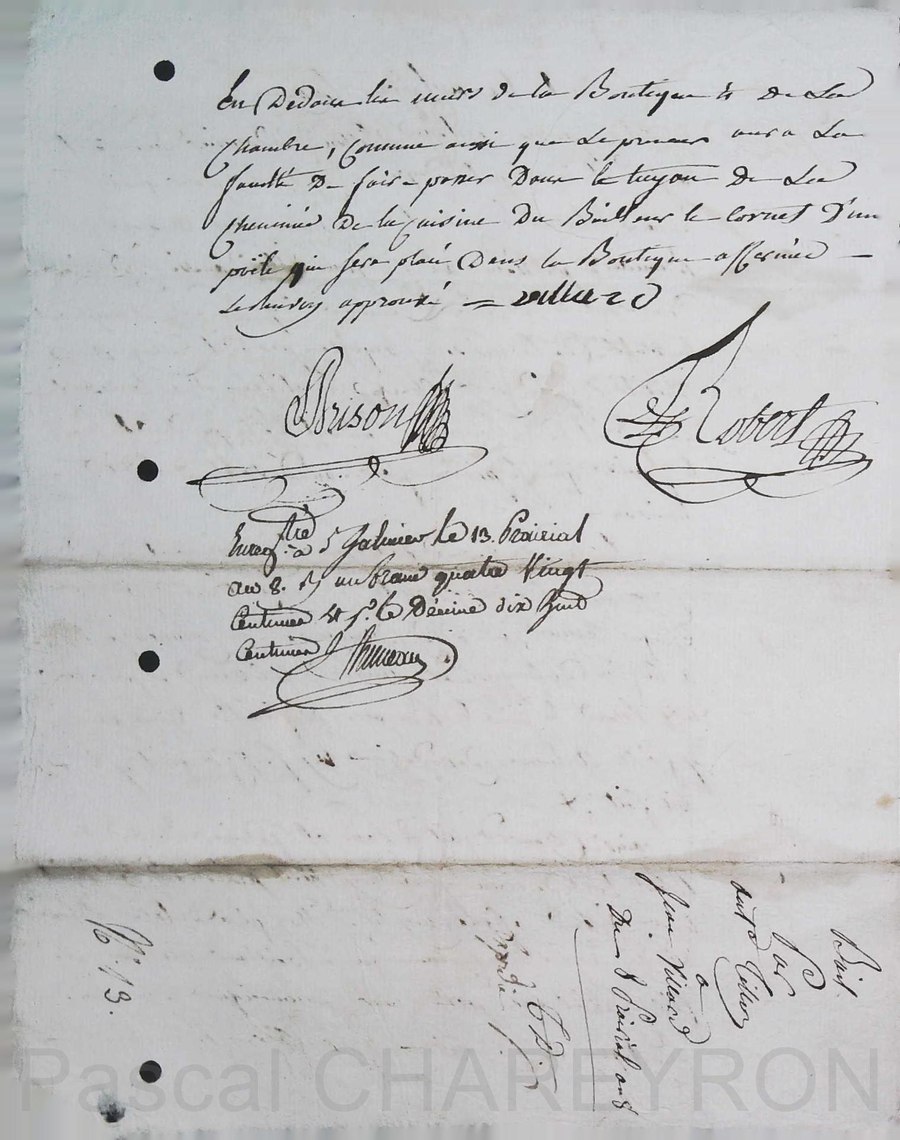 En Dedans les murs de la Boutique & De La
Chambre, Comme aussi que Le preneur aura La
faculté De faire passer Dans le tuyau De La
Cheminée De la Cuisine Du Bailleur le Cornet D'un
poële qui sera placé Dans la Boutique affermée —
Le Renvoy approuvé — villard
Brison
Robert
Enreg.tré à St Galmier Le 13. Prairial
an 8. R/ un franc quatre Vingt
Centimes & p.r le Décime dix huit
Centimes
Bail
Par
Tillon
a
Jean Villard
Du 8 Prairial an 8
N° 13.
Pascal CHAREYRON